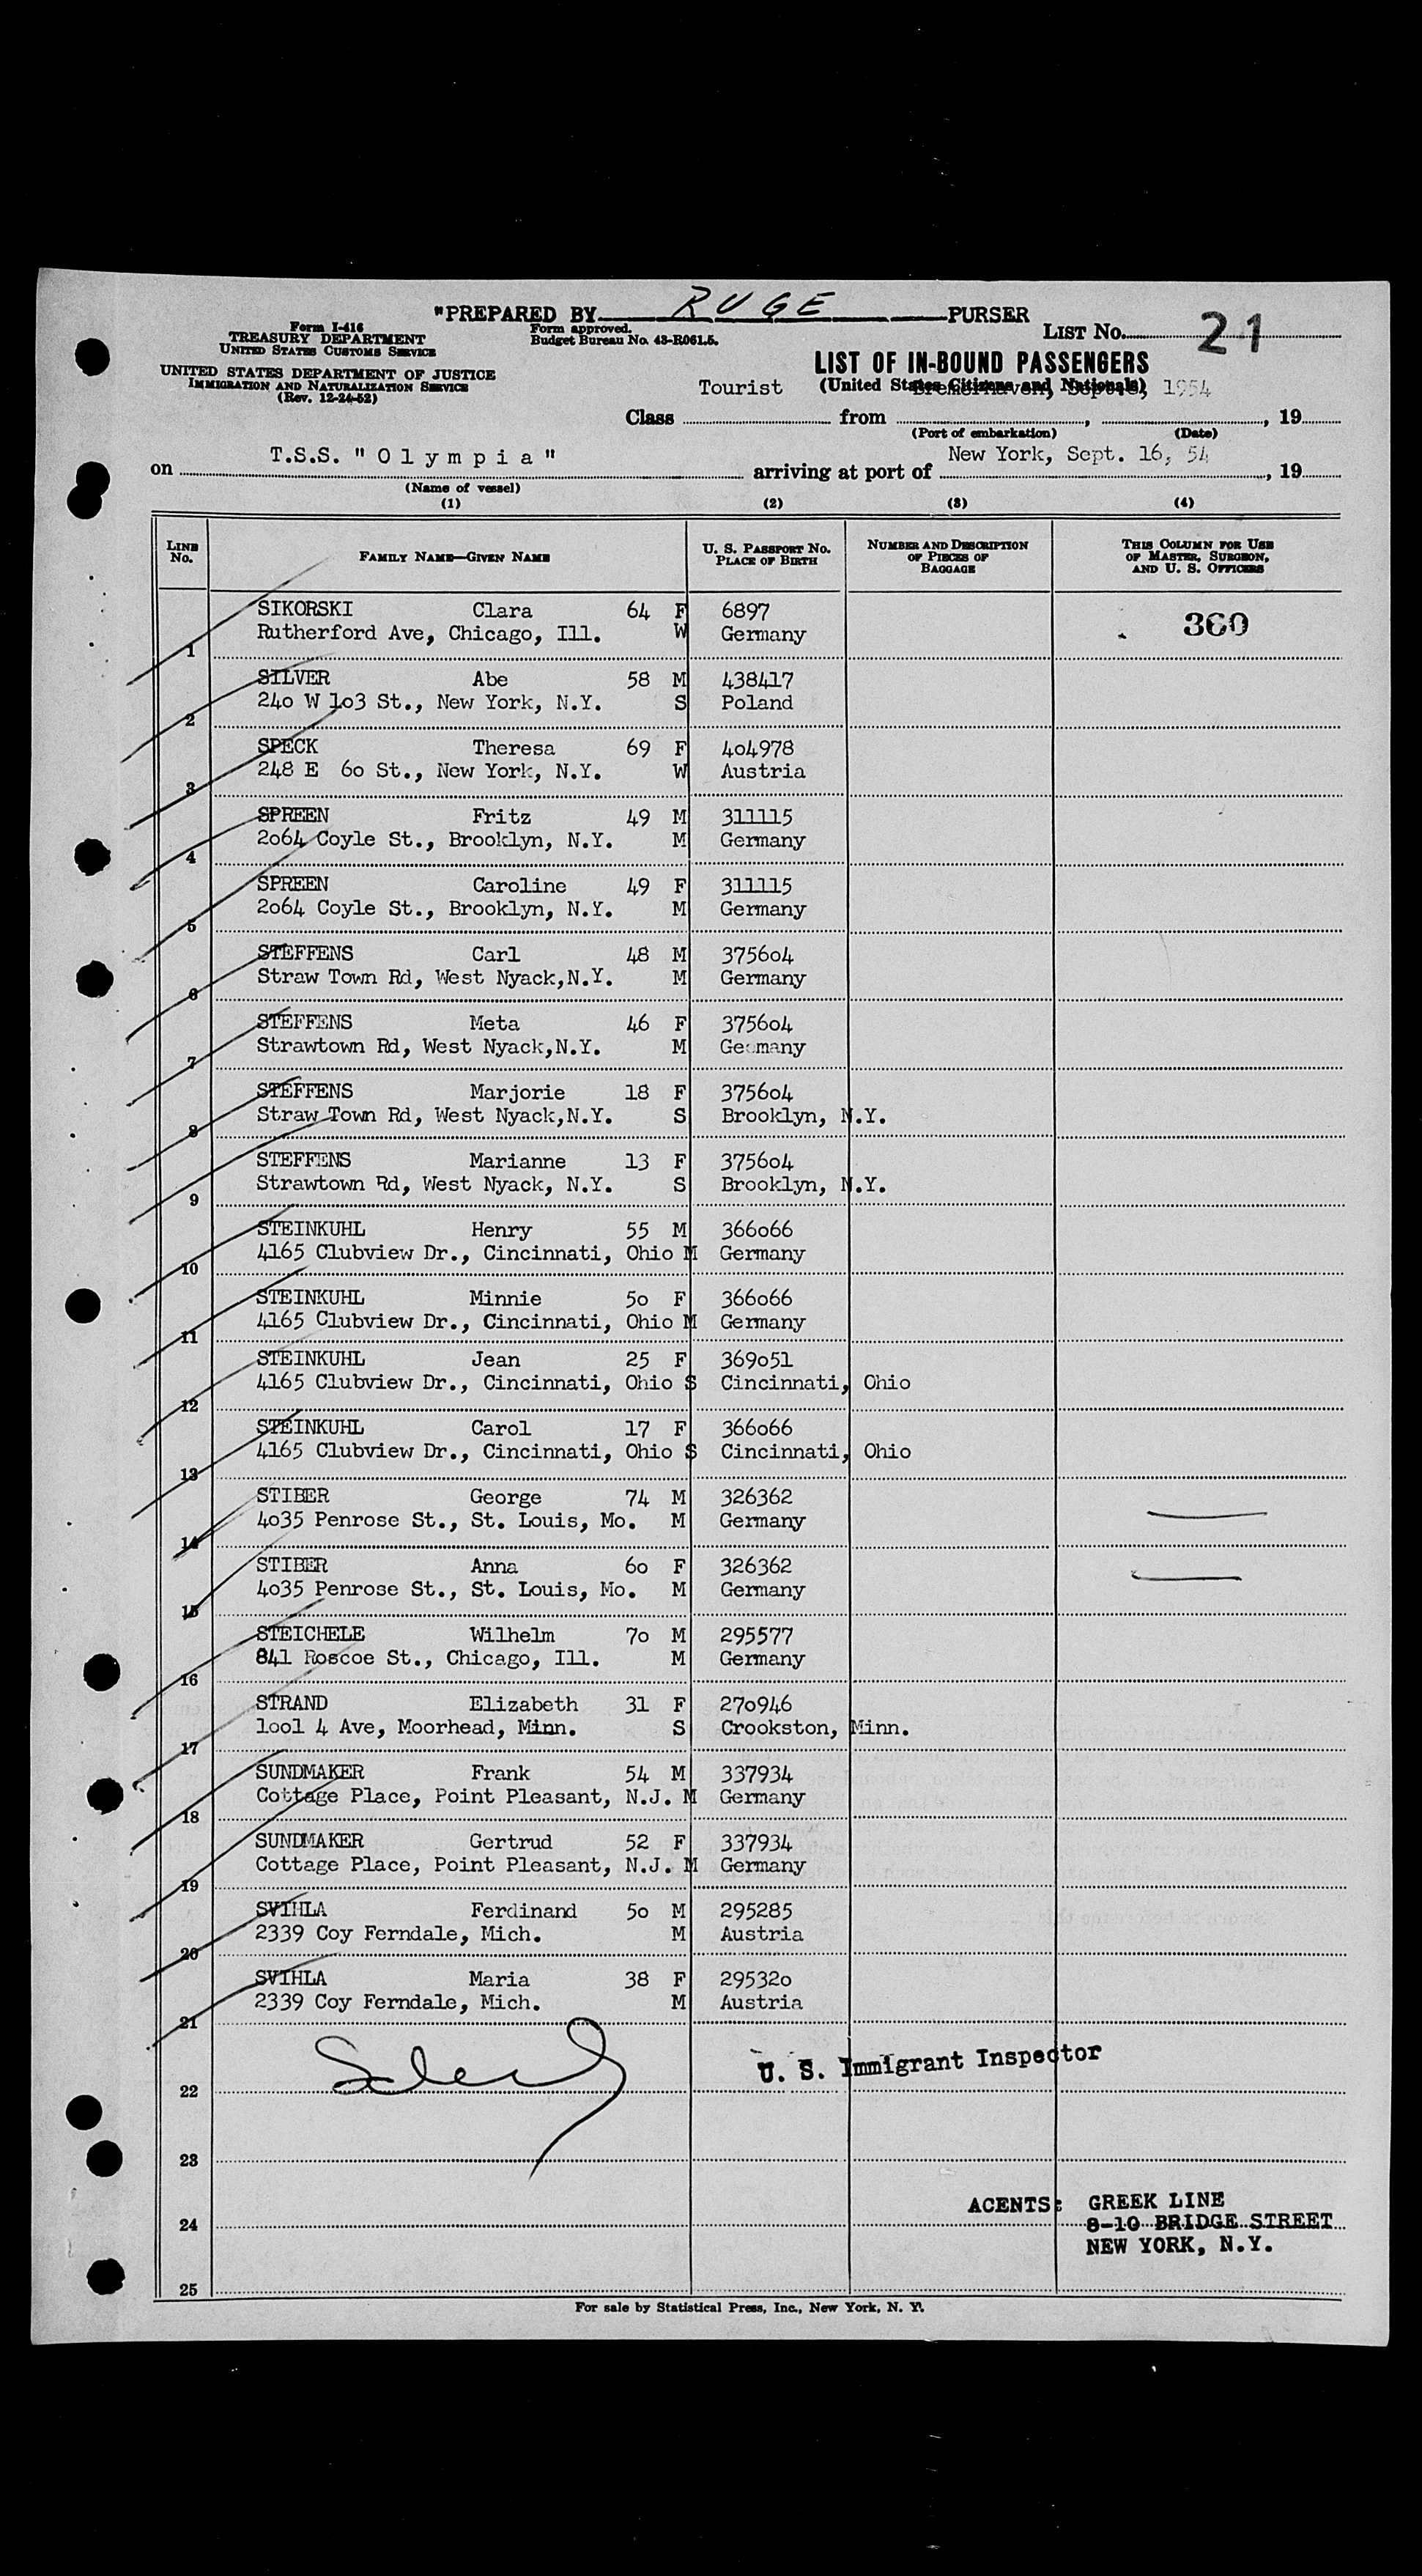 "PREPARED BY RUGE PURSER
Form I-416
TREASURY DEPARTMENT
UNITED STATES CUSTOMS SERVICE
UNITED STATES DEPARTMENT OF JUSTICE
IMMIGRATION AND NATURALIZATION SERVICE
(Rev. 12-24-52)
Form approved.
Budget Bureau No. 43-R061.5.
LIST No. 21
LIST OF IN-BOUND PASSENGERS
(United States Citizens and Nationals)
Class Tourist from Bremerhaven, Sept. 1954, 19
(Port of embarkation) (Date)
on T.S.S. "Olympia" arriving at port of New York, Sept. 16, 54, 19
(Name of vessel)
(1) (2) (3) (4)
LINE No. FAMILY NAME—GIVEN NAME U. S. PASSPORT No. PLACE OF BIRTH NUMBER AND DESCRIPTION OF PIECES OF BAGGAGE THIS COLUMN FOR USE OF MASTER, SURGEON, AND U. S. OFFICERS
SIKORSKI Clara 64 F 6897 360
1 Rutherford Ave, Chicago, Ill. W Germany
SILVER Abe 58 M 438417
2 240 W 103 St., New York, N.Y. S Poland
SPECK Theresa 69 F 404978
3 248 E 60 St., New York, N.Y. W Austria
SPREEN Fritz 49 M 311115
4 2064 Coyle St., Brooklyn, N.Y. M Germany
SPREEN Caroline 49 F 311115
5 2064 Coyle St., Brooklyn, N.Y. M Germany
STEFFENS Carl 48 M 375604
6 Straw Town Rd, West Nyack,N.Y. M Germany
STEFFENS Meta 46 F 375604
7 Strawtown Rd, West Nyack,N.Y. M Germany
STEFFENS Marjorie 18 F 375604
8 Straw Town Rd, West Nyack,N.Y. S Brooklyn, N.Y.
STEFFENS Marianne 13 F 375604
9 Strawtown Rd, West Nyack, N.Y. S Brooklyn, N.Y.
STEINKUHL Henry 55 M 366066
10 4165 Clubview Dr., Cincinnati, Ohio M Germany
STEINKUHL Minnie 50 F 366066
11 4165 Clubview Dr., Cincinnati, Ohio M Germany
STEINKUHL Jean 25 F 369051
12 4165 Clubview Dr., Cincinnati, Ohio S Cincinnati, Ohio
STEINKUHL Carol 17 F 366066
13 4165 Clubview Dr., Cincinnati, Ohio S Cincinnati, Ohio
STIBER George 74 M 326362
14 4035 Penrose St., St. Louis, Mo. M Germany
STIBER Anna 60 F 326362
15 4035 Penrose St., St. Louis, Mo. M Germany
STEICHELE Wilhelm 70 M 295577
16 841 Roscoe St., Chicago, Ill. M Germany
STRAND Elizabeth 31 F 270946
17 1001 4 Ave, Moorhead, Minn. S Crookston, Minn.
SUNDMAKER Frank 54 M 337934
18 Cottage Place, Point Pleasant, N.J. M Germany
SUNDMAKER Gertrud 52 F 337934
19 Cottage Place, Point Pleasant, N.J. M Germany
SVIHLA Ferdinand 50 M 295285
20 2339 Coy Ferndale, Mich. M Austria
SVIHLA Maria 38 F 295320
21 2339 Coy Ferndale, Mich. M Austria
22 U. S. Immigrant Inspector
23
24 AGENTS: GREEK LINE
8-10 BRIDGE STREET
NEW YORK, N.Y.
25
For sale by Statistical Press, Inc., New York, N. Y.